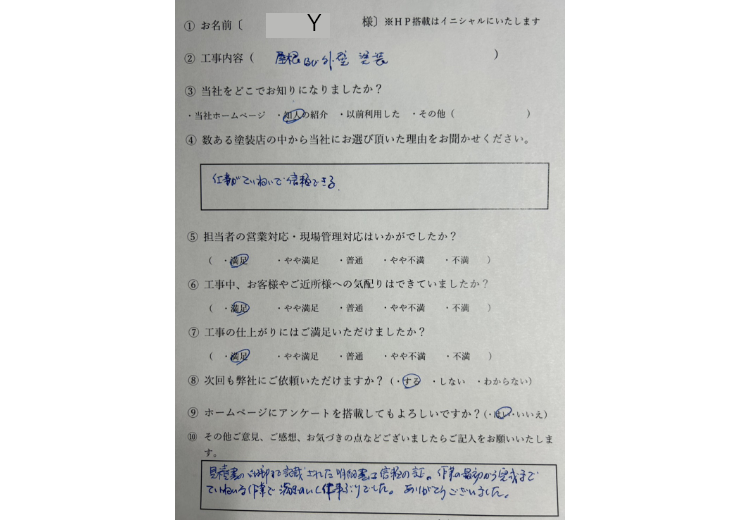 ① お名前〔 Y 様〕※HP搭載はイニシャルにいたします
② 工事内容（ 屋根 外壁 塗装 ）
③ 当社をどこでお知りになりましたか？
・当社ホームページ ・知人の紹介 ・以前利用した ・その他（ ）
④ 数ある塗装店の中から当社にお選び頂いた理由をお聞かせください。
仕事がていねいで信頼できる。
⑤ 担当者の営業対応・現場管理対応はいかがでしたか？
（ ・満足 ・やや満足 ・普通 ・やや不満 ・不満 ）
⑥ 工事中、お客様やご近所様への気配りはできていましたか？
（ ・満足 ・やや満足 ・普通 ・やや不満 ・不満 ）
⑦ 工事の仕上がりにはご満足いただけましたか？
（ ・満足 ・やや満足 ・普通 ・やや不満 ・不満 ）
⑧ 次回も弊社にご依頼いただけますか？（・する ・しない ・わからない）
⑨ ホームページにアンケートを搭載してもよろしいですか？（・はい・いいえ）
⑩ その他ご意見、ご感想、お気づきの点などございましたらご記入をお願いいたしま
す。
見積書の 記載された明細書は信頼の証。作業の最初から完成まで
ていねいな作業で 仕事ぶりでした。ありがとうございました。